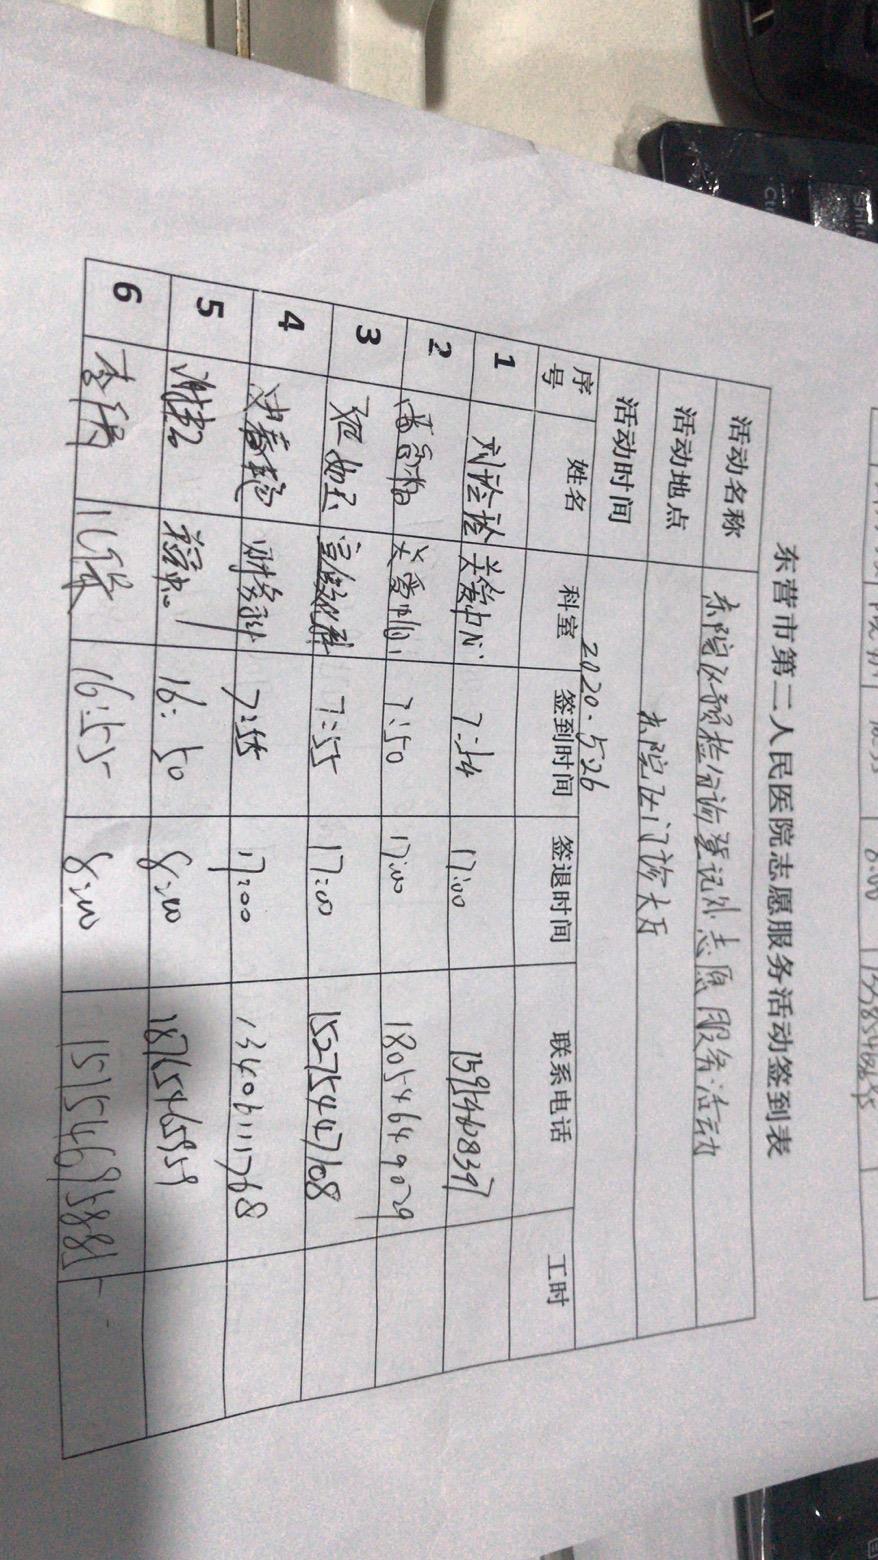 东营市第二人民医院志愿服务活动签到表
活动名称 东院区预检分诊登记处志愿服务活动
活动地点 东院区门诊大厅
活动时间 2020.5.26
序号 姓名 科室 签到时间 签退时间 联系电话 工时
1 刘诊诊 关爱中心 7:54 17:00 15954608397
2 关爱中心 7:50 17:00 18054649029
3 7:55 17:00 15275447108
4 财务科 7:55 17:00 13406111768
5 16:50 8:00 18765465959
6 儿保 16:55 8:00 15154695881